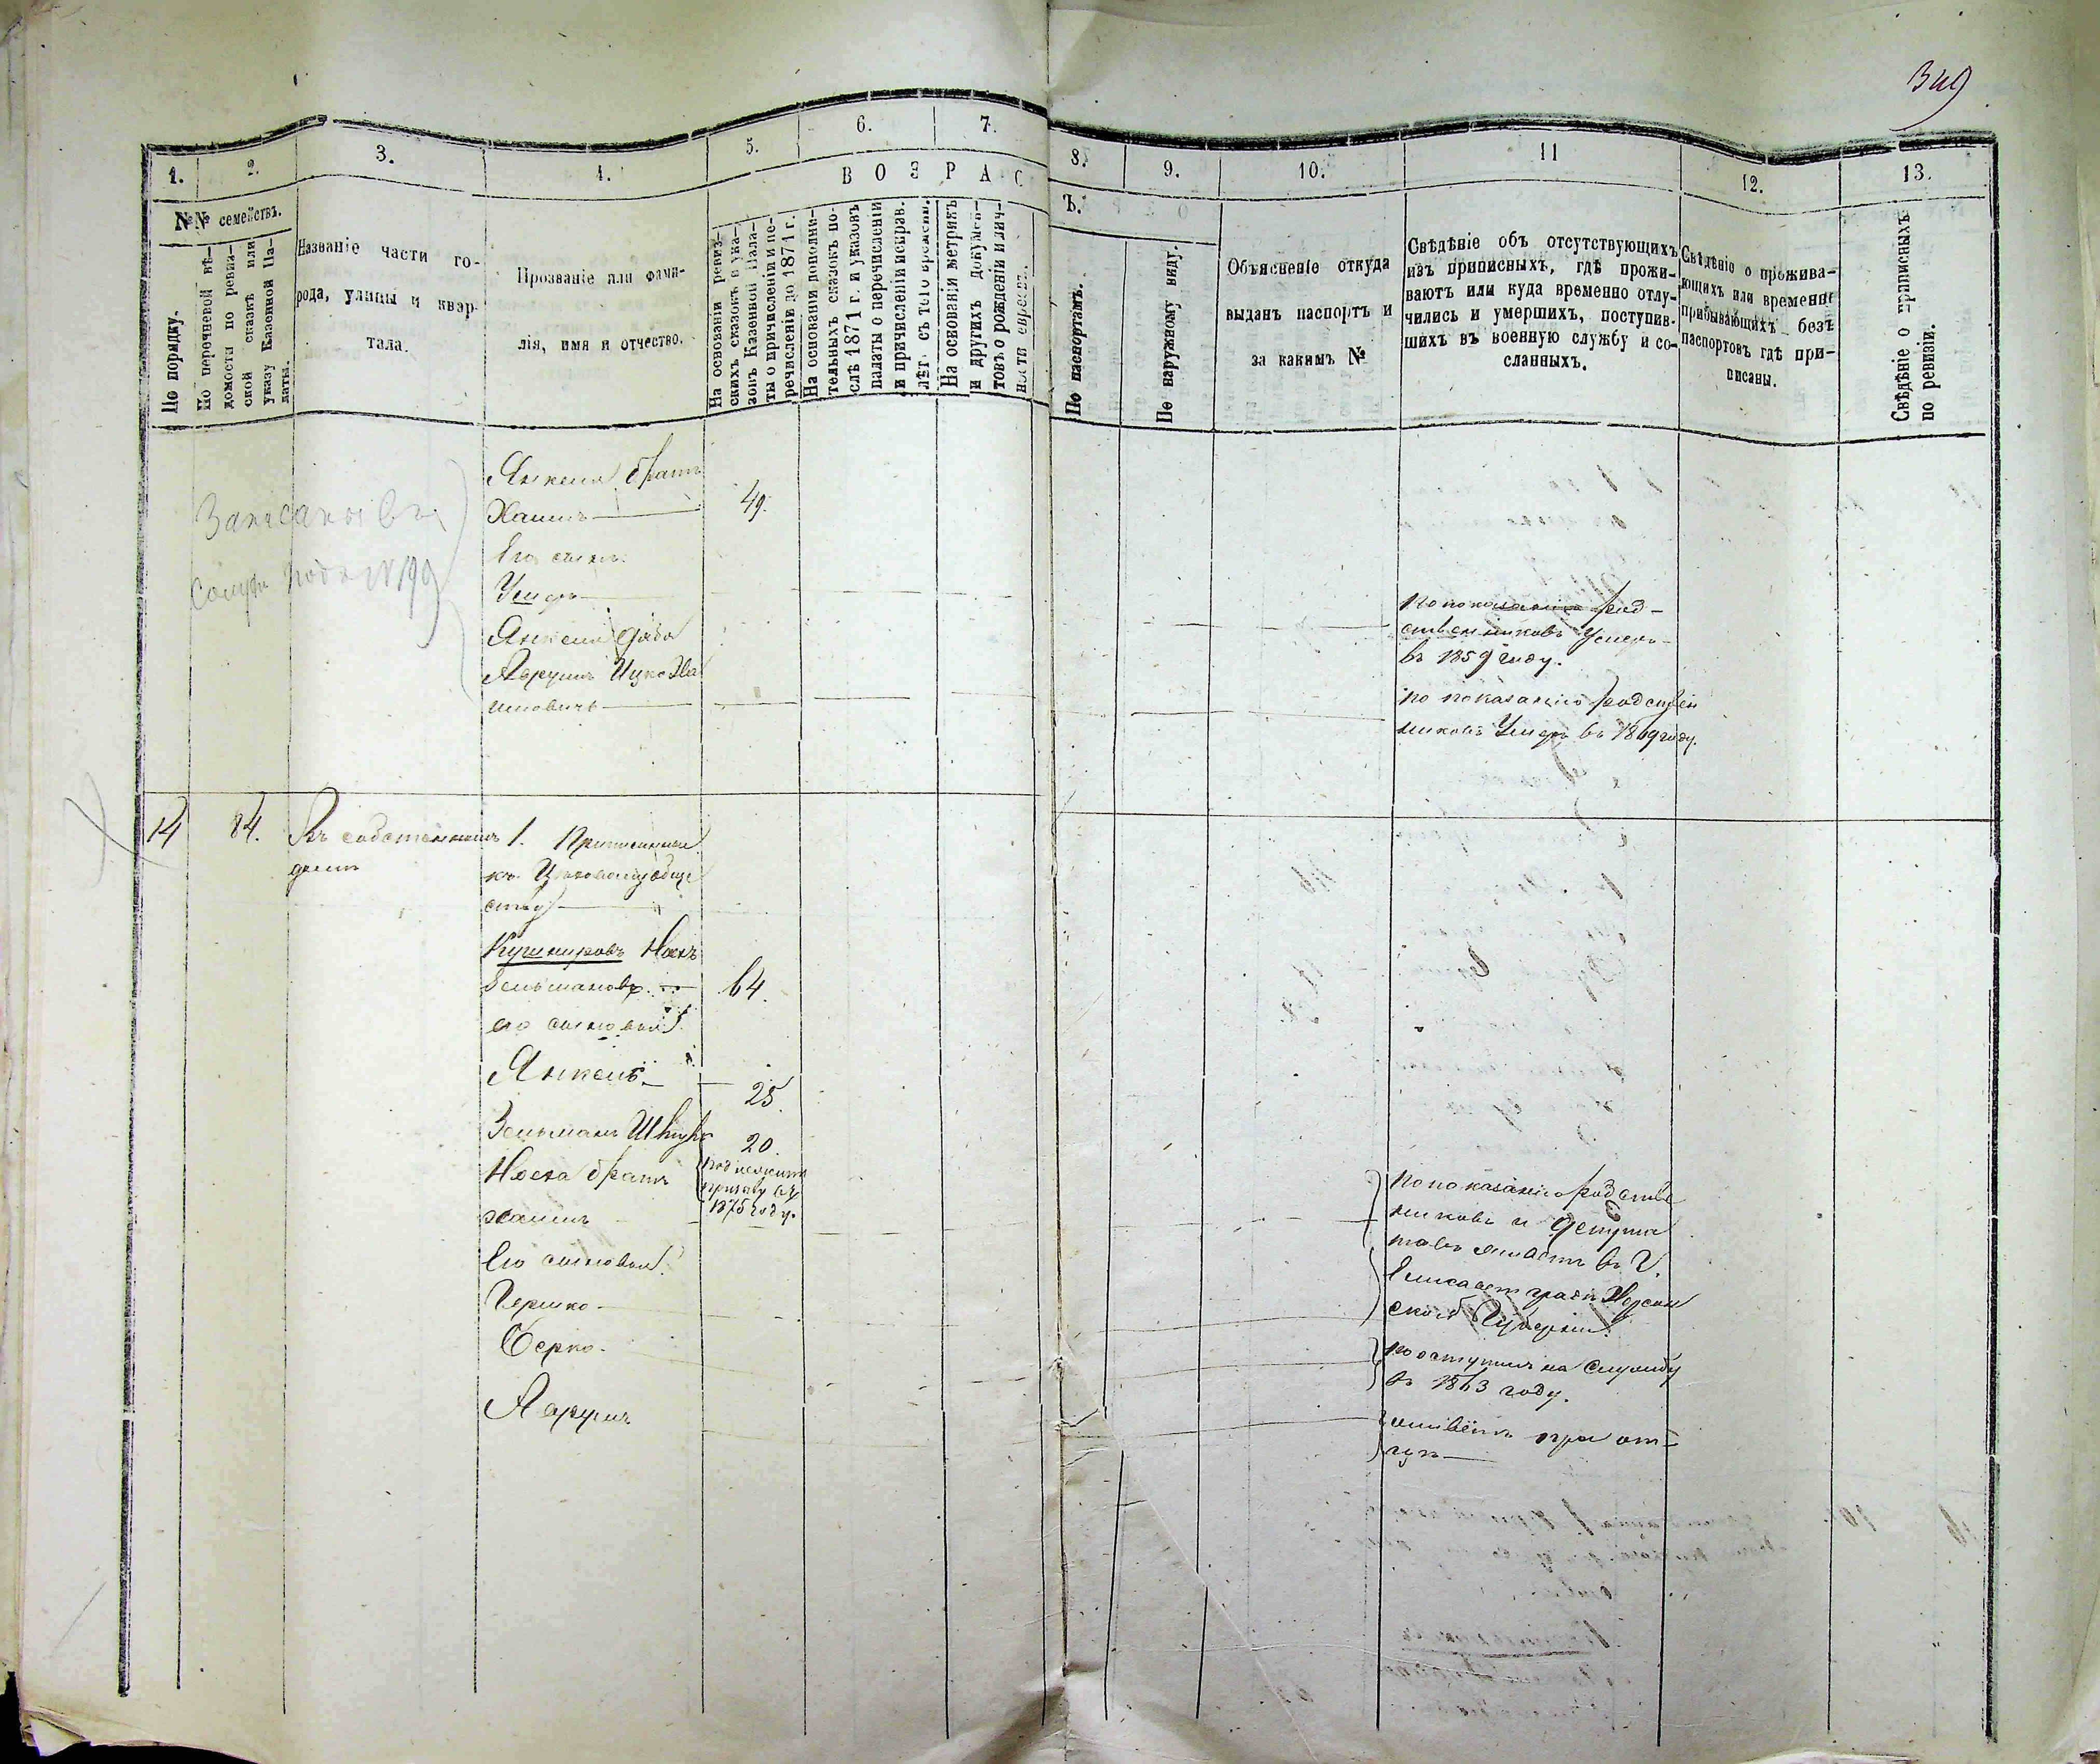 349
1.
2.
3.
4.
5.
6.
7.
8.
9.
10.
11
12.
13.
№№ семействъ.
По порядку.
По перечневой вѣ-
домости по ревиз-
ской сказкѣ или
указу Казенной Па-
латы.
Названіе части го-
рода, улицы и квар-
тала.
Прозваніе или фами-
лія, имя и отчество.
ВОЗРАС
Ъ.
На основаніи ревиз-
скихъ сказокъ и ука-
зовъ Казенной Пала-
ты о причисленіи и пе-
речисленіи до 1871 г.
На основаніи дополни-
тельныхъ сказокъ по-
слѣ 1871 г. и указовъ
палаты о перечисленіи
и причисленіи исправ.
лѣт. съ того времени.
На основаніи метрикъ
и другихъ докумен-
товъ о рожденіи и лич-
ности евреевъ.
По паспортамъ.
По наружному виду.
Объясненіе откуда
выданъ паспортъ и
за какимъ №
Свѣдѣніе объ отсутствующихъ
изъ приписныхъ, гдѣ прожи-
ваютъ или куда временно отлу-
чились и умершихъ, поступив-
шихъ въ военную службу и со-
сланныхъ.
Свѣдѣніе о прожива-
ющихъ или временно
прибывающихъ безъ
паспортовъ гдѣ при-
писаны.
Свѣдѣніе о приписныхъ
по ревизіи.
Записаны въ
подъ N 199
Янкеля братъ
Хаимъ 49.
Его сынъ
Умеръ
по показанію род-
ственниковъ Умеръ
въ 1859 году.
Янкеля дядя
Аврумъ Ицко Ха
имовичъ
по показанію родствен
никовъ Умеръ въ 1869 году.
14 84. Въ собственномъ
домѣ
1. Приписанный
къ общe
ству
Кушнировъ Носъ
Зельмановъ 64.
его сыновья
Янкель 25.
Зельманъ 20.
подлежитъ
призыву въ
1875 году.
Носа братъ
Хаимъ
Его сыновья
Гершко
Берко
Аврумъ
По показанію родстве
никовъ и депута
товъ живетъ въ Г.
Елисаветградѣ Херсон
ской Губерніи.
поступилъ на службу
въ 1863 году.
живётъ при от-
цѣ